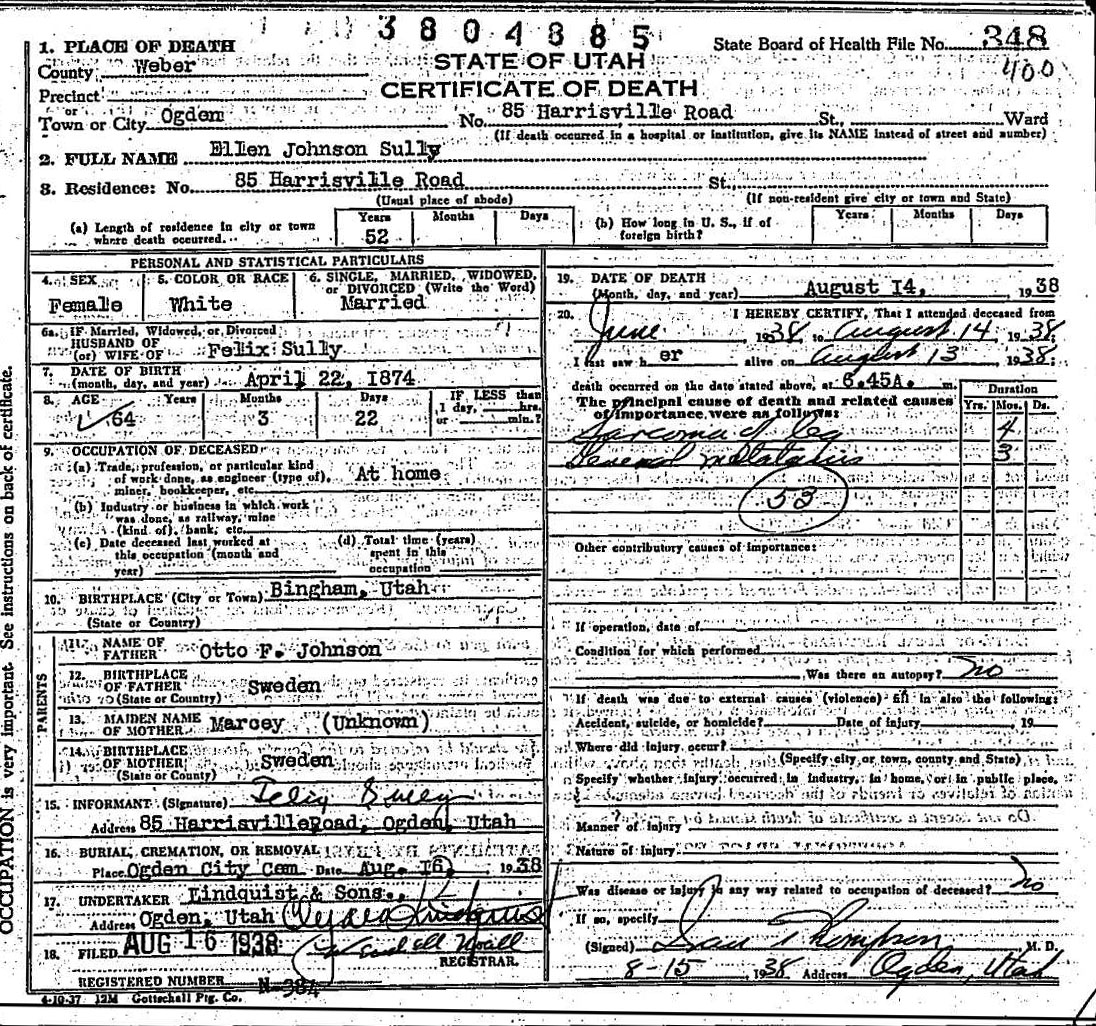 3804885
State Board of Health File No. 348
400
STATE OF UTAH
CERTIFICATE OF DEATH
1. PLACE OF DEATH
County Weber
Precinct
or
Town or City Ogden No. 85 Harrisville Road St., Ward
(If death occurred in a hospital or institution, give its NAME instead of street and number)
2. FULL NAME Ellen Johnson Sully
3. Residence: No. 85 Harrisville Road St.
(Usual place of abode) (If non-resident give city or town and State)
(a) Length of residence in city or town where death occurred. Years 52 Months Days
(b) How long in U. S., if of foreign birth? Years Months Days
PERSONAL AND STATISTICAL PARTICULARS
4. SEX Female
5. COLOR OR RACE White
6. SINGLE, MARRIED, WIDOWED, or DIVORCED (Write the Word) Married
6a. IF Married, Widowed, or Divorced
HUSBAND OF
(or) WIFE OF Felix Sully
7. DATE OF BIRTH
(month, day, and year) April 22, 1874
8. AGE Years 64 Months 3 Days 22 IF LESS than 1 day, hrs. or min.?
9. OCCUPATION OF DECEASED
(a) Trade, profession, or particular kind of work done, as engineer (type of), miner, bookkeeper, etc. At home
(b) Industry or business in which work was done, as railway, mine (kind of), bank, etc.
(c) Date deceased last worked at this occupation (month and year)
(d) Total time (years) spent in this occupation
10. BIRTHPLACE (City or Town) Bingham, Utah
(State or Country)
PARENTS
11. NAME OF FATHER Otto F. Johnson
12. BIRTHPLACE OF FATHER Sweden
(State or Country)
13. MAIDEN NAME OF MOTHER Marcey (Unknown)
14. BIRTHPLACE OF MOTHER Sweden
(State or Country)
15. INFORMANT (Signature) Felix Sully
Address 85 HarrisvilleRoad, Ogden, Utah
16. BURIAL, CREMATION, OR REMOVAL
Place Ogden City Cem. Date Aug. 16, 1938
17. UNDERTAKER Lindquist & Sons.
Address Ogden, Utah
18. FILED AUG 16 1938
REGISTRAR.
REGISTERED NUMBER N-384
4-10-37 12M Gottschall Ptg. Co.
19. DATE OF DEATH
(Month, day, and year) August 14, 1938
20. I HEREBY CERTIFY, That I attended deceased from
June 1938 to August 14, 1938.
I last saw h er alive on August 13, 1938.
death occurred on the date stated above, at 6.45A. m.
The principal cause of death and related causes of importance were as follows:
Duration
Yrs. Mos. Ds.
Sarcoma of leg 4
General metastasis 3
53
Other contributory causes of importance:
If operation, date of
Condition for which performed
Was there an autopsy? no
If death was due to external causes (violence) fill in also the following:
Accident, suicide, or homicide? Date of injury 19
Where did injury occur?
(Specify city or town, county and State)
Specify whether injury occurred in industry, in home, or in public place,
Manner of Injury
Nature of Injury
Was disease or injury in any way related to occupation of deceased? no
If so, specify
(Signed) Thompson, M. D.
8-15, 1938 Address Ogden, Utah
OCCUPATION is very important. See instructions on back of certificate.